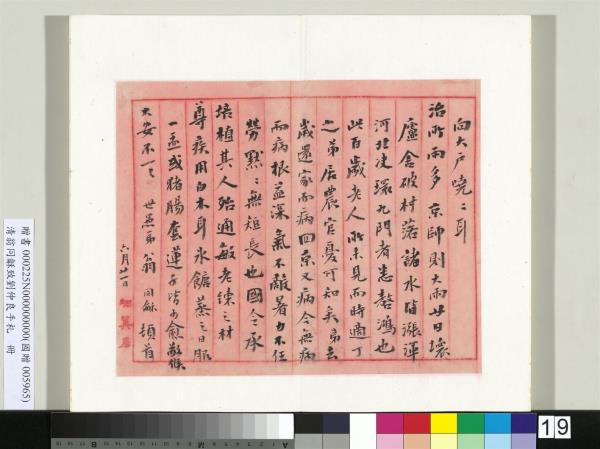 向大戶嘵〻耳
治所雨多京師則大雨廿日壞
廬舍破村落諸水皆漲渾
河北決環九門者悉嗸鴻也
此百歲老人所未見而時適丁
之弟居農官憂可知矣弟去
歲還家而病回京又病今無病
而病根益深氣不敵暑力不任
勞默〻無短長也國令之承
培植其人殆通敏老練之材
尊疾用白木耳冰餹蒸之日服
一盂或豬腸煮蓮子皆可愈敬候
大安不一〻 世愚弟翁同龢頓首
六月廿一日
贈書 000225N000000000(國贈 005965)
清翁同龢致劉仲良手札 冊
19